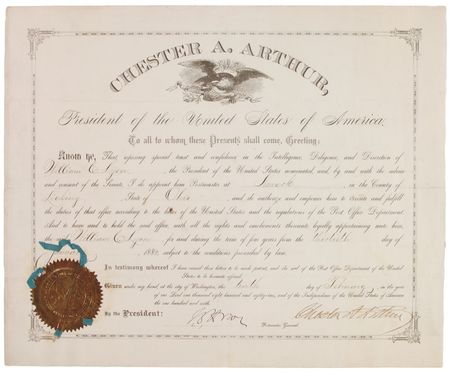 CHESTER A. ARTHUR,
President of the United States of America,
To all to whom these Presents shall come, Greeting:
Know ye, That, reposing special trust and confidence in the Intelligence, Diligence, and Discretion of
William C. Lyon, the President of the United States nominated, and, by and with the advice
and consent of the Senate, did appoint him Postmaster at Newark, in the County of
Licking, State of Ohio, and do authorize and empower him to execute and fulfil
the duties of that office according to the laws of the United States and the regulations of the Post Office Department.
And to have and to hold the said office, with all the rights and emoluments thereunto legally appertaining unto him,
the said William C. Lyon for and during the term of four years from the day of
1882, subject to the conditions prescribed by law.
In testimony whereof I have caused these letters to be made patent, and the seal of the Post Office Department of the United
States to be hereunto affixed.
Given under my hand at the city of Washington, the day of February, in the year
of our Lord one thousand eight hundred and eighty-two, and of the Independence of the United States of America
the one hundred and sixth.
By the President:
Chester A. Arthur
Postmaster General.